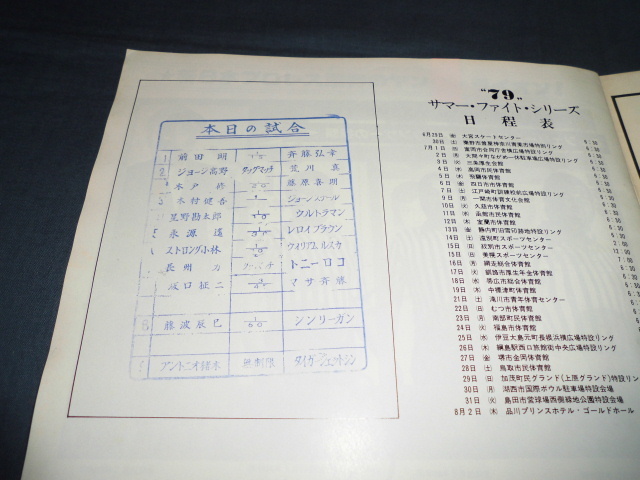 本日の試合
1 前田 明 斉藤弘幸
2 ジョージ高野 タッグマッチ 荒川 真
木戸 修 藤原喜明
木村健吾
星野勘太郎 ウルトラマン
永源 遙 レロイブラウン
ストロング小林 ウィリアムルスカ
長州 力 トニーロコ
坂口征二 マサ斉藤
藤波辰巳 1/60 シンリーガン
アントニオ猪木 無制限
"79"
サマー・ファイト・シリーズ
日程表
6月29日 ㊎ 大宮スケートセンター 6:30
30日 ㊏
7月1日 ㊐
2日 ㊊
3日 ㊋ 三条厚生会館
4日 ㊌ 高岡市民体育館
5日 ㊍ 飛騨体育館
6日 ㊎ 四日市市体育館
7日 ㊏ 江戸崎町訓練校前広場特設リング
9日 ㊊ 一関市体育文化会館
10日 ㊋ 久慈市体育館
11日 ㊌ 函館市民体育館
12日 ㊍ 室蘭市体育館
13日 ㊎ 静内町旧雪印跡地特設リング
14日 ㊏ 遠別町スポーツセンター
15日 ㊐ 紋別市スポーツセンター
15日 ㊐ 美幌スポーツセンター
16日 ㊊ 網走総合体育館
17日 ㊋ 釧路市厚生年金体育館
18日 ㊌ 帯広市総合体育館
19日 ㊍ 中標津町体育館
21日 ㊏ 滝川市青年体育センター
22日 ㊐ むつ市体育館
23日 ㊊ 南部町民体育館
24日 ㊋ 福島市体育館
25日 ㊌ 伊豆大島元町長根浜横広場特設リング
26日 ㊍
27日 ㊎ 堺市金岡体育館
28日 ㊏ 鳥取市民体育館
29日 ㊐ 加茂町民グランド(上原グランド)特設リング
30日 ㊊ 湖西市国際ボウル駐車場特設会場
31日 ㊋ 島田市営球場西側緑地公園特設会場
8月2日 ㊍ 品川プリンスホテル・ゴールドホール